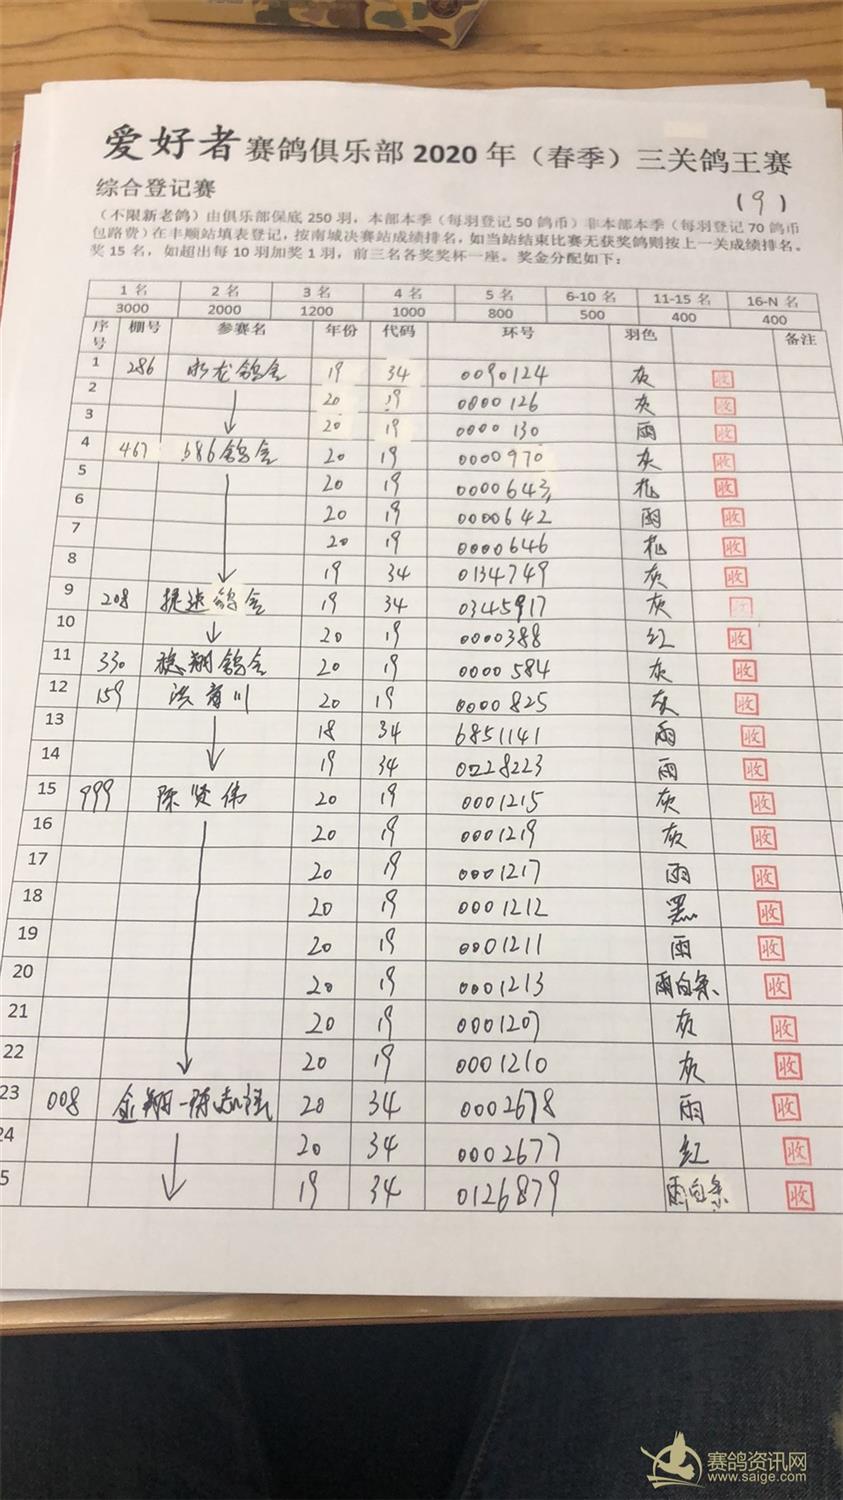 爱好者赛鸽俱乐部2020年（春季）三关鸽王赛
综合登记赛
(9)
（不限新老鸽）由俱乐部保底250羽，本部本季（每羽登记50鸽币）非本部本季（每羽登记70鸽币
包路费）在丰顺站填表登记，按南城决赛站成绩排名，如当站结束比赛无获奖鸽则按上一关成绩排名。
奖15名，如超出每10羽加奖1羽，前三名各奖奖杯一座。奖金分配如下：
1名 2名 3名 4名 5名 6-10名 11-15名 16-N名
3000 2000 1200 1000 800 500 400 400
序号 棚号 参赛名 年份 代码 环号 羽色 备注
1 286 龙鸽舍 19 34 0090124 灰 收
2 20 19 0000126 灰 收
3 20 19 0000130 雨 收
4 467 686鸽舍 20 19 0000970 灰 收
5 20 19 0000643 花 收
6 20 19 0000642 雨 收
7 20 19 0000646 花 收
8 19 34 0134749 灰 收
9 208 捷达鸽舍 19 34 0345917 灰 收
10 20 19 0000388 红 收
11 330 翔鸽舍 20 19 0000584 灰 收
12 159 洪川 20 19 0000825 灰 收
13 18 34 6851141 雨 收
14 19 34 0228223 雨 收
15 999 陈贤伟 20 19 0001215 灰 收
16 20 19 0001219 灰 收
17 20 19 0001217 雨 收
18 20 19 0001212 黑 收
19 20 19 0001211 雨 收
20 20 19 0001213 雨白条 收
21 20 19 0001207 灰 收
22 20 19 0001210 灰 收
23 008 金翔-陈志 20 34 0002678 雨 收
24 20 34 0002677 红 收
5 19 34 0126879 雨白条 收
赛鸽资讯网
www.saige.com